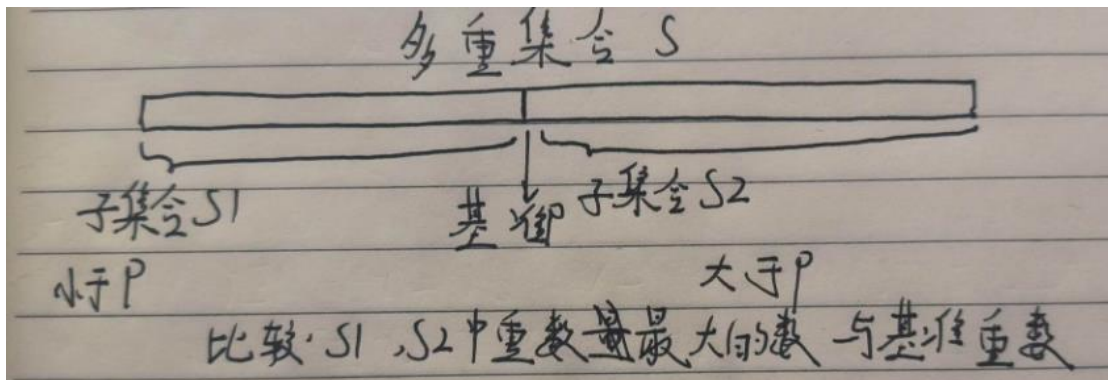 多重集合 S
子集合S1 基准P 子集合S2
小于P 大于P
比较 S1,S2中重数最大的数与基准重数